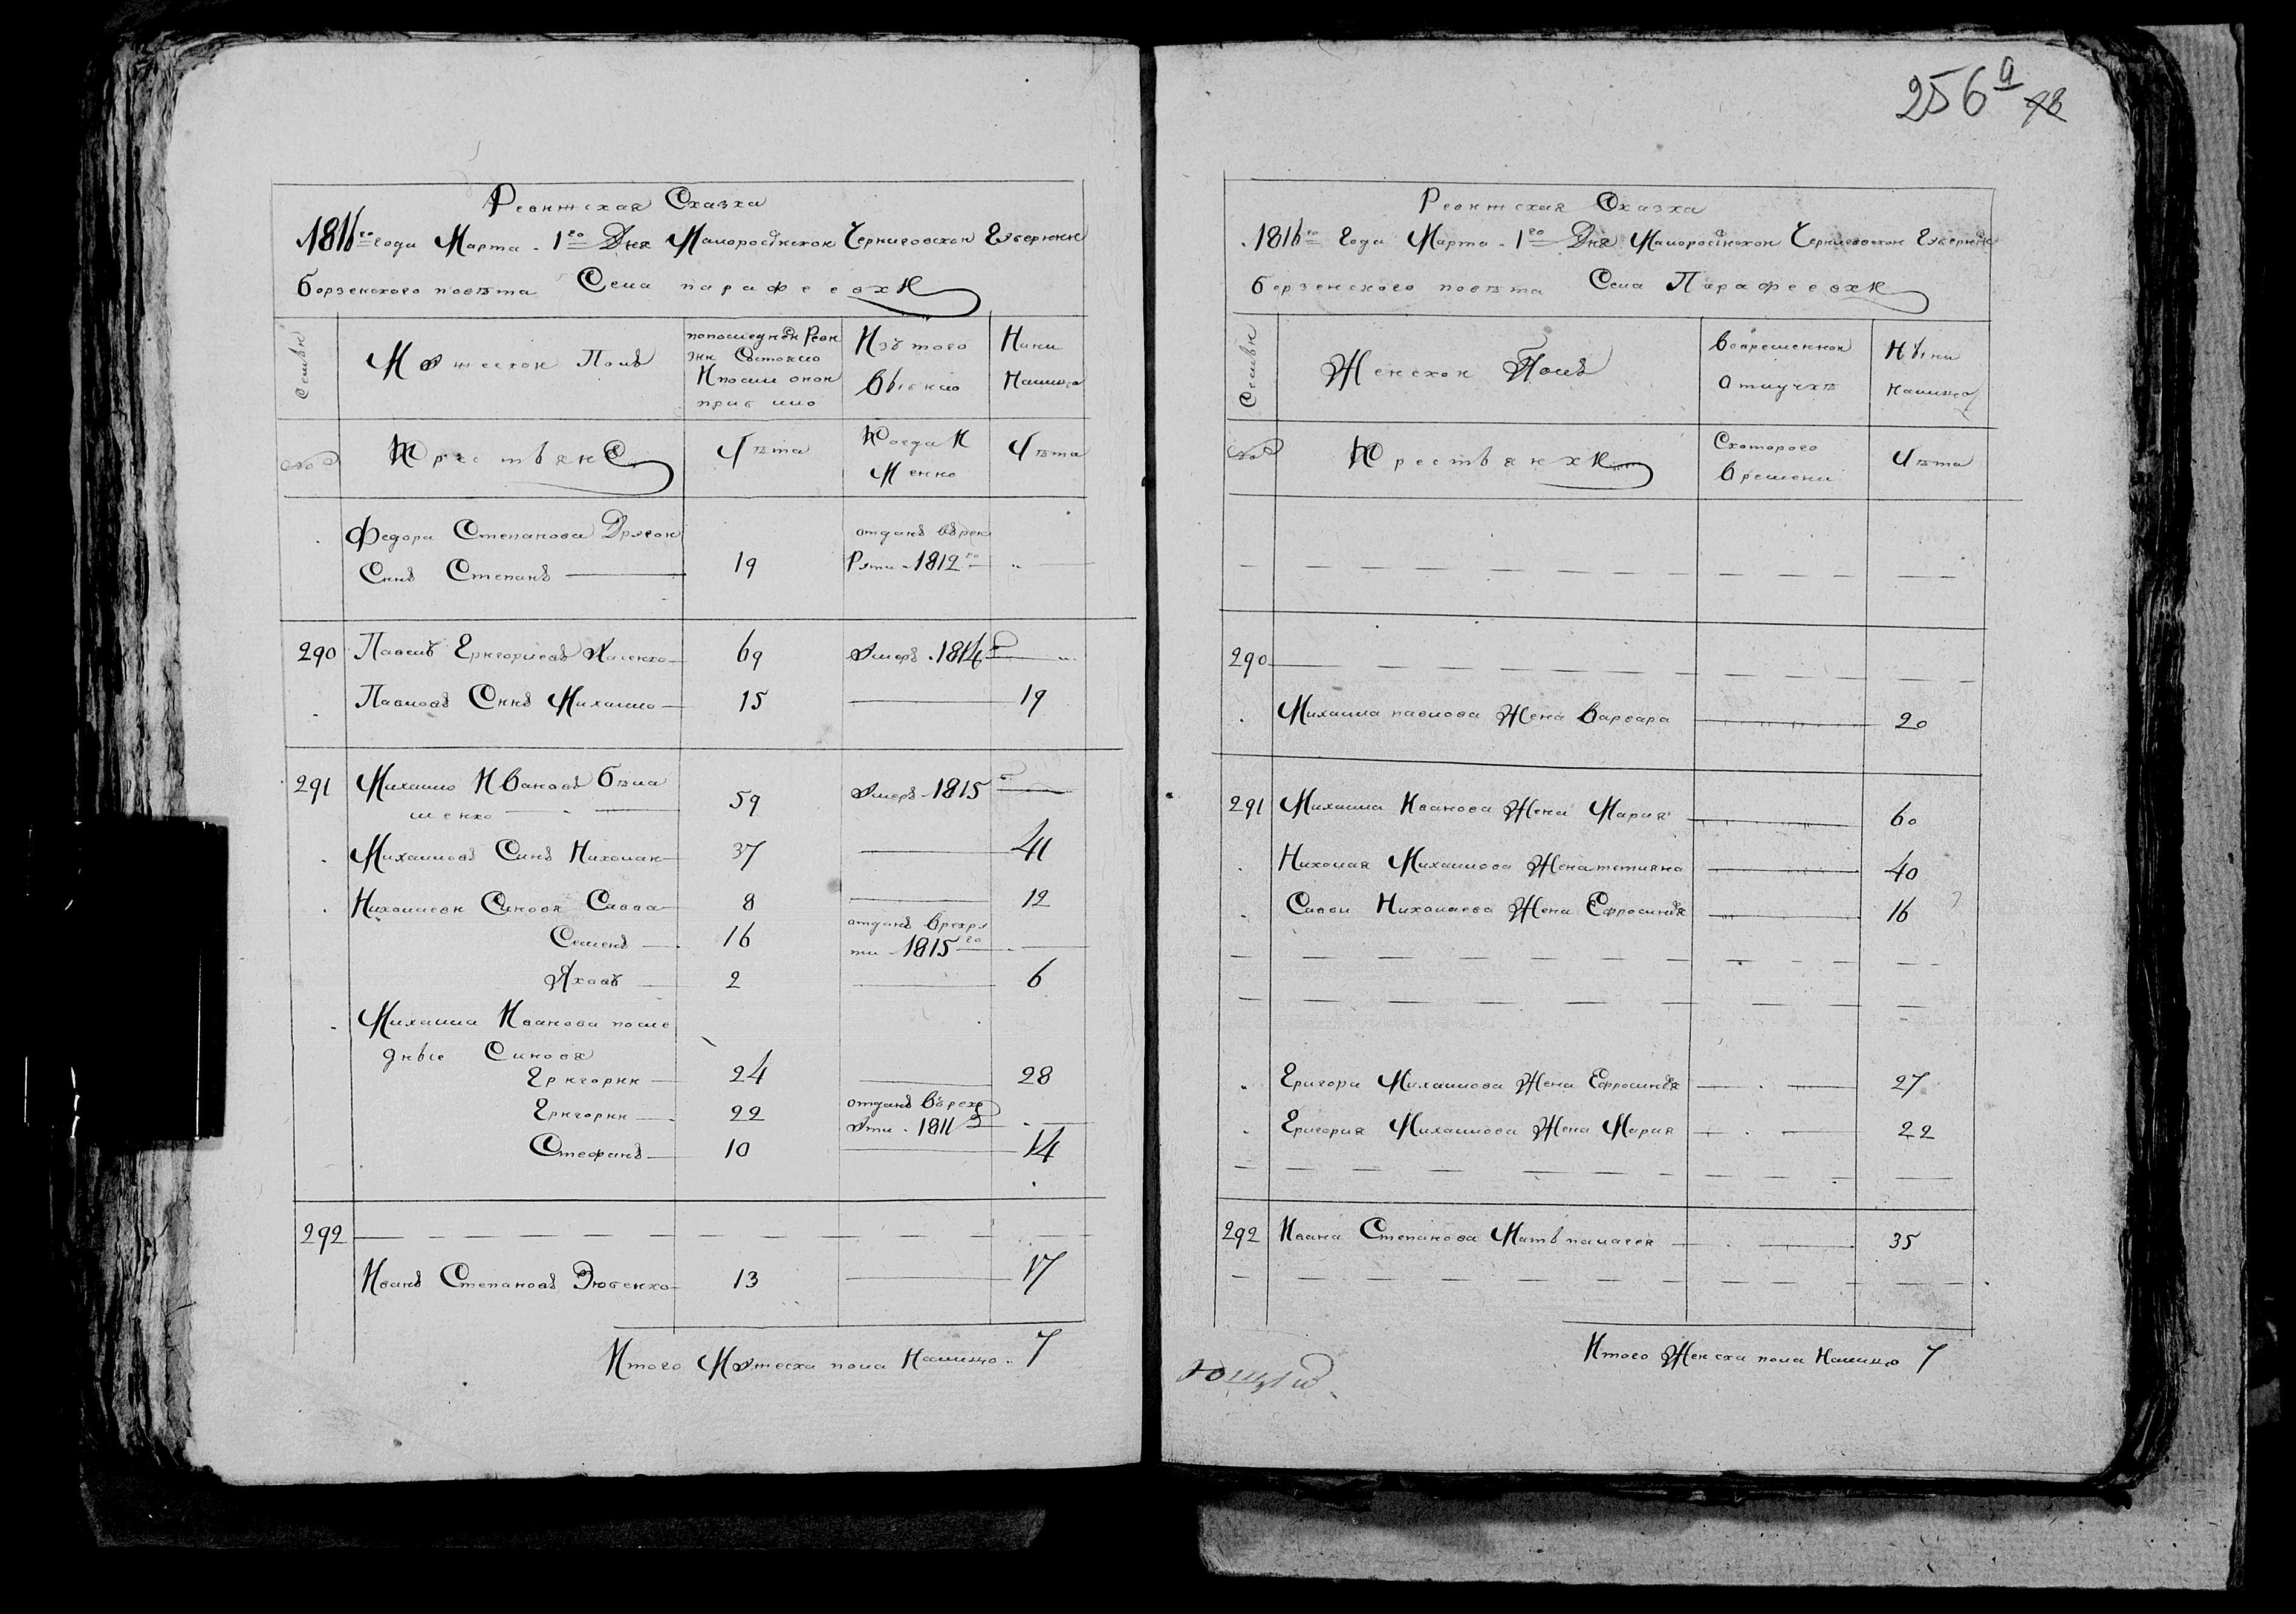 256 а 78
Ревижская Сказка
1816го года Марта 1го Дня Малоросийской Черниговской Губернии
борзенского повѣта Села парафеевки
Семьи
Мужеской Полъ
попоследней Реви
зии Состояло
И после оной
прибыло
Изъ того
Выбыло
Ныни
Налицо
№
Крестьяне
Лѣта
Когда И
Менно
Лѣта
Федора Степанова Другой
Синъ Степанъ 19
отданъ въ рек
Рути 1812го
290 Павелъ Григориевъ 69 Умеръ 1814
Павловъ Синъ Михайло 15 19
291 Михайло Ивановъ Бѣла
шенко 59 Умеръ 1815
Михайловъ Синъ Николай 37 41
Николаеви Синовя Савва 8 12
Семенъ 16
отданъ врекру
ти 1815го
Яковъ 2 6
Михайла Иванова после
дные Синовя
Григорий 24 28
Григорий 22
отданъ въ рекр
ути 1811
Стефанъ 10 14
292
Иванъ Степановъ Зюбенко 13 17
Итого Мужеска пола Налицо 7
Ревижская Сказка
1816го Года Марта 1го Дня Малоросийской Черниговской Губернии
борзенского повѣта Села Парафеевки
Семьи
Женской Полъ
вовременной
отлучкѣ
Нынѣ
налицо
№
Крестьянки
Скоторого
времени
Лѣта
290
Михайла павлова Жена Варвара 20
291 Михайла Иванова Жена Мария 60
Николая Михайлова Жена татияна 40
Савви Николаева Жена Ефросиния 16
Григора Михайлова Жена Ефросиния 27
Григория Михайлова Жена Мария 22
292 Ивана Степанова Мать палагея 35
Итого Женска пола Налицо 7